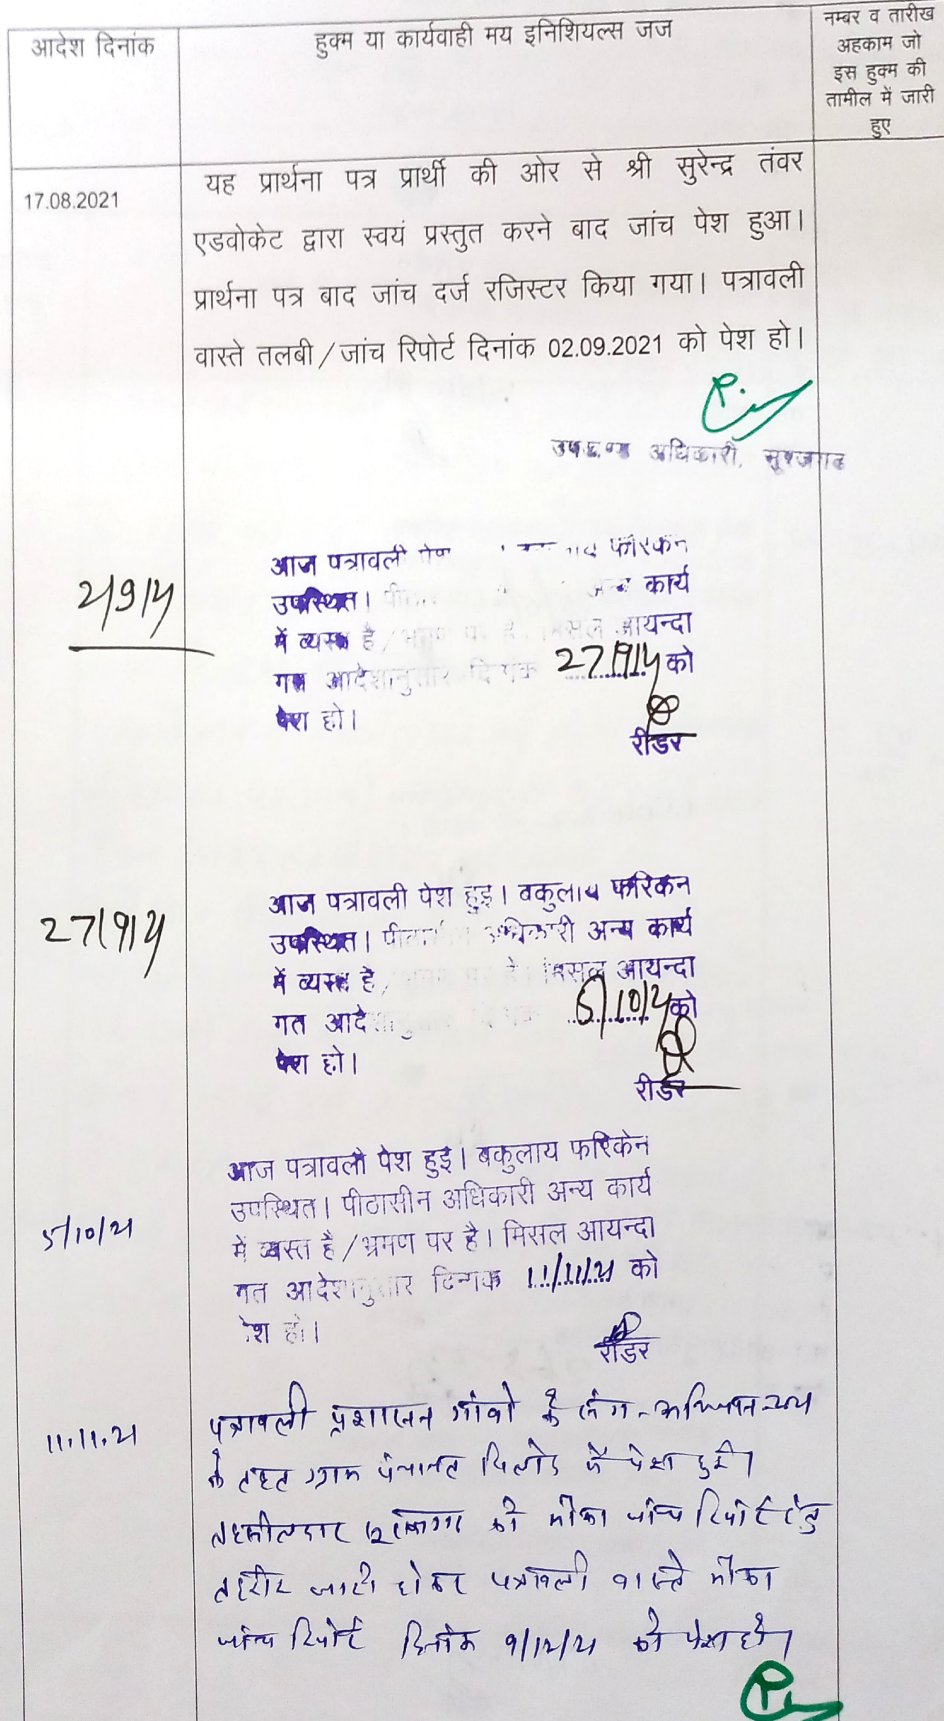 आदेश दिनांक
हुक्म या कार्यवाही मय इनिशियल्स जज
नम्बर व तारीख
अहकाम जो
इस हुक्म की
तामील में जारी
हुए
17.08.2021
यह प्रार्थना पत्र प्रार्थी की ओर से श्री सुरेन्द्र तंवर
एडवोकेट द्वारा स्वयं प्रस्तुत करने बाद जांच पेश हुआ।
प्रार्थना पत्र बाद जांच दर्ज रजिस्टर किया गया। पत्रावली
वास्ते तलबी/जांच रिपोर्ट दिनांक 02.09.2021 को पेश हो।
उपखण्ड अधिकारी, सूरजगढ
2/9/21
आज पत्रावली पेश फरिकेन
उपस्थित। कार्य
में व्यस्त है/ मिसल आयन्दा
गत आदेशानुसार दिनांक 27/9/21 को
पेश हो।
रीडर
27/9/21
आज पत्रावली पेश हुई। वकुलाय फरिकेन
उपस्थित। अधिकारी अन्य कार्य
में व्यस्त है/ मिसल आयन्दा
गत 5/10/21 को
पेश हो।
रीडर
5/10/21
आज पत्रावली पेश हुई। वकुलाय फरिकेन
उपस्थित। पीठासीन अधिकारी अन्य कार्य
में व्यस्त है/भ्रमण पर है। मिसल आयन्दा
गत आदेशानुसार दिनांक 11/11/21 को
पेश हो।
रीडर
11.11.21
पत्रावली प्रशासन गांवो के संग
के तहत ग्राम पंचायत में पेश हुई।
तहसीलदार को मौका जांच रिपोर्ट हेतु
तहरीर जारी होकर पत्रावली वास्ते मौका
जांच रिपोर्ट दिनांक 9/12/21 को पेश हो।